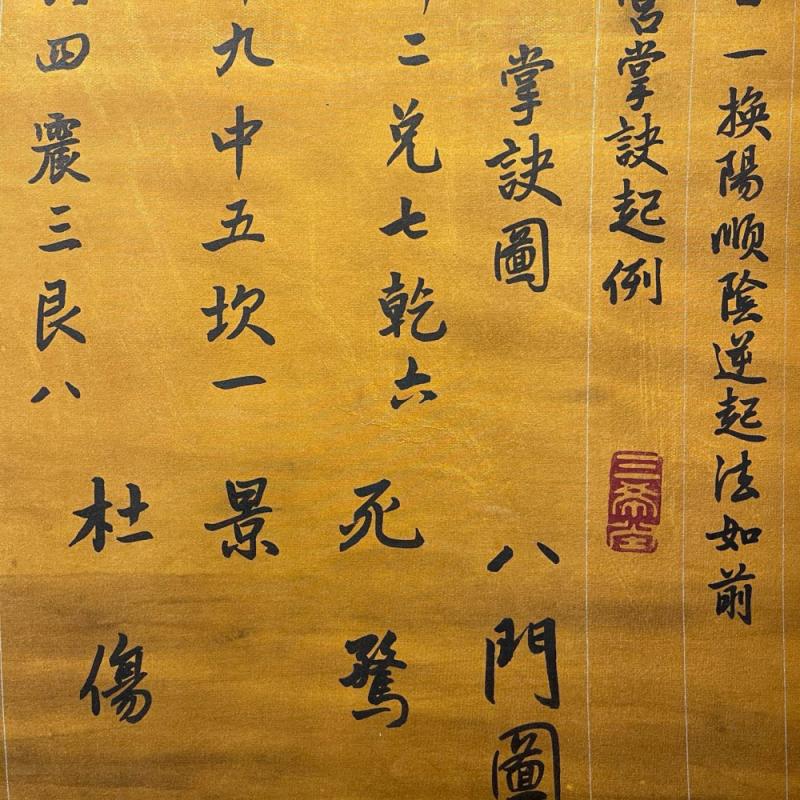 一換陽順陰逆起法如前
宮掌訣起例
三希堂
掌訣圖
二兌七乾六
九中五坎一
四震三艮八
八門圖
死驚
景
杜傷